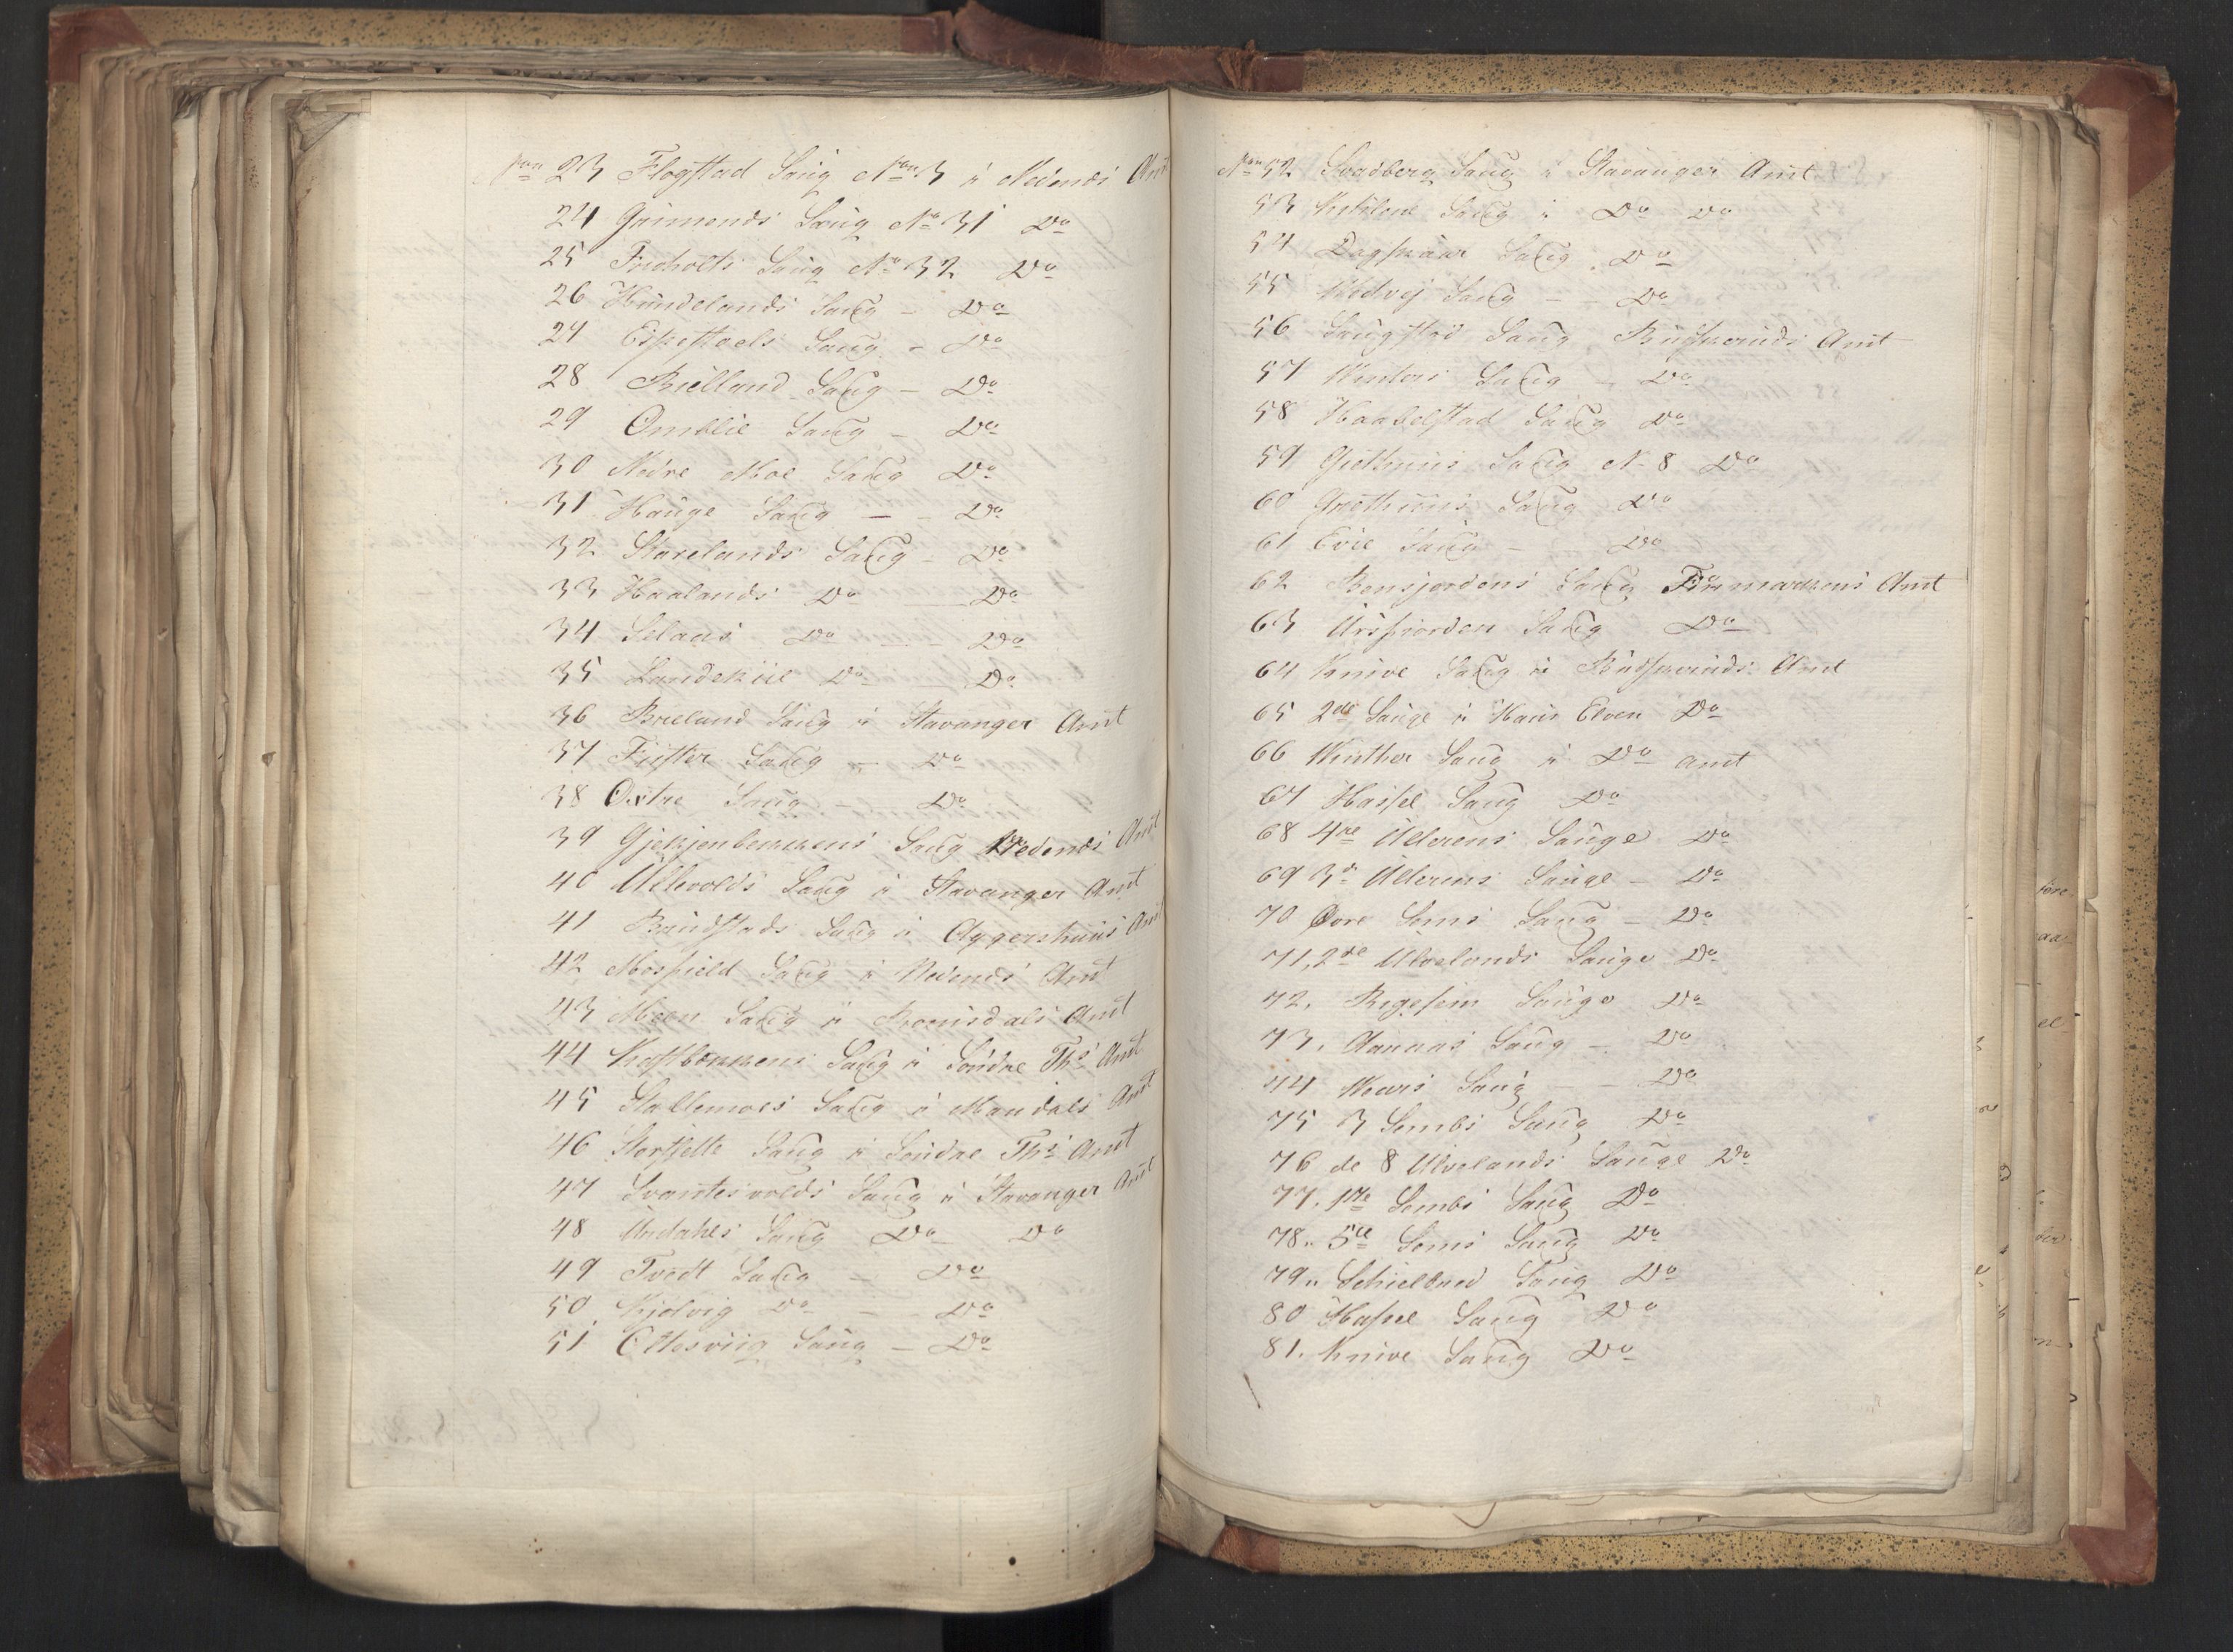 No 23 Flogstad Saug No 3 i Nedenæs Amt
24 Grimends Saug No 31 Do
25 Froholts Saug No 32 Do
26 Hundelands Saug - Do
27 Espestoels Saug - Do
28 Bielland Saug - Do
29 Omblie Saug - Do
30 Nedre Moe Saug Do
31 Hauge Saug - - Do
32 Skarelands Saug - Do
33 Haalands Do Do
34 Selaas Do - Do
35 Landskiil Do Do
36 Brieland Saug i Stavanger Amt
37 Fuster Saug - Do
38 Oxtre Saug - Do
39 Saug Nedenæs Amt
40 Ullevolds Saug i Stavanger Amt
41 Brudstads Saug i Aggershuus Amt
42 Mosfield Saug i Nedenæs Amt
43 Moen Saug i Romsdals Amt
44 Saug i Søndre Ths Amt
45 Stallemoes Saug i Mandals Amt
46 Saug i Søndre Ths Amt
47 Svantesvolds Saug i Stavanger Amt
48 Undahls Saug Do Do
49 Tvedt Saug - Do
50 Kjølvig Do - Do
51 Ottesviig Saug - Do
No 52 Svadberg Saug i Stavanger Amt
53 Saug i Do Do
54 Saug Do
55 Saug - - Do
56 Saugstad Saug Buskeruds Amt
57 Saug - Do
58 Haabelstad Saug Do
59 Giethuus Saug N 8 Do
60 Grethuus Saug Do
61 Evie Saug - Do
62 Bensjordens Saug Finmarkens Amt
63 Ursfiorden Saug Do
64 Knive Saug i Buskeruds Amt
65 2de Sauge i Elven Do
66 Winther Saug i Do Amt
67 Saug Do
68 4re Ullerens Sauge Do
69 3de Ullerens Sauge - Do
70 Øvre Sems Saug - Do
71, 2de Ulvelands Sauge Do
72. Sauge Do
73. Saug - Do
74 Saug - - Do
75 3 Sembs Saug Do
76 de 8 Ulvelands Sauge Do
77. 1te Sembs Saug Do
78. 5te Sems Saug Do
79. Saug Do
80 Saug Do
81. Knive Saug Do